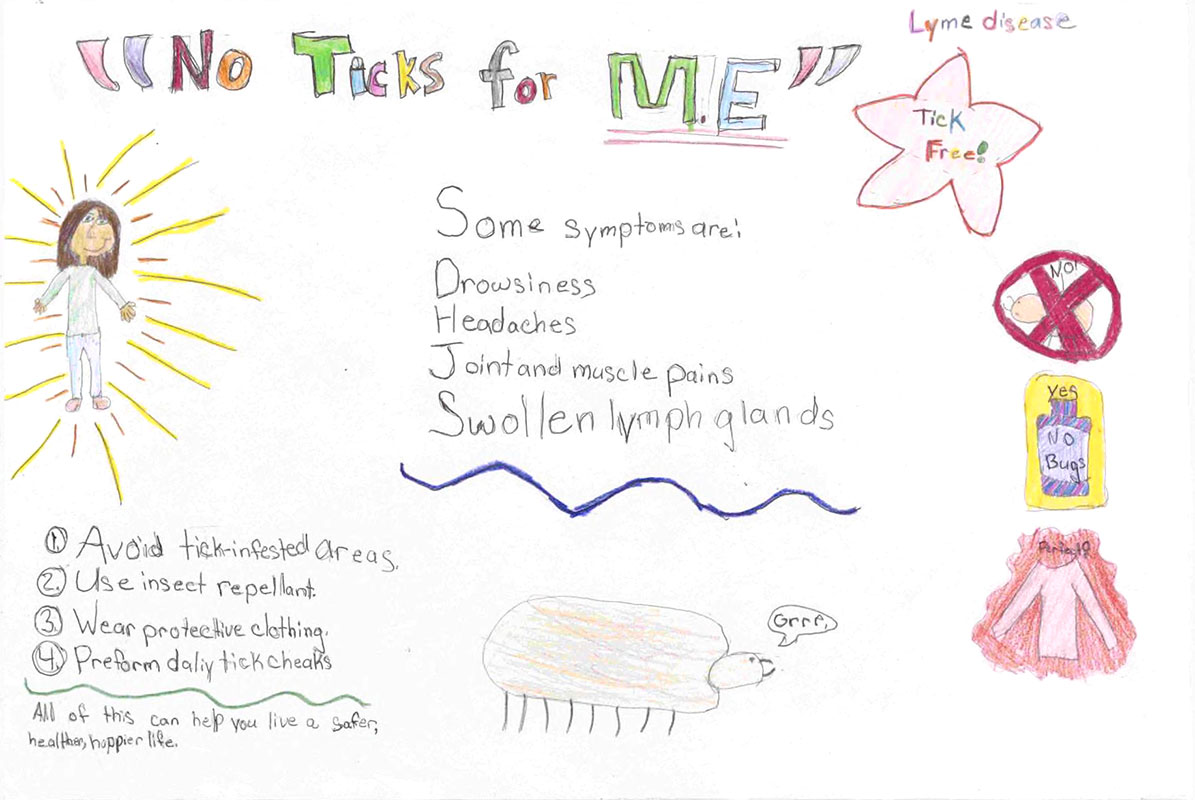 Lyme disease
"No Ticks for M.E"
Tick
Free!
Some symptoms are:
Drowsiness
Headaches
Joint and muscle pains
Swollen lymph glands
No!
Yes
No
Bugs
Perfect!
1. Avoid tick-infested areas.
2. Use insect repellant.
3. Wear protective clothing.
4. Preform daliy tick cheaks
All of this can help you live a safer,
happier life.
Grrr,